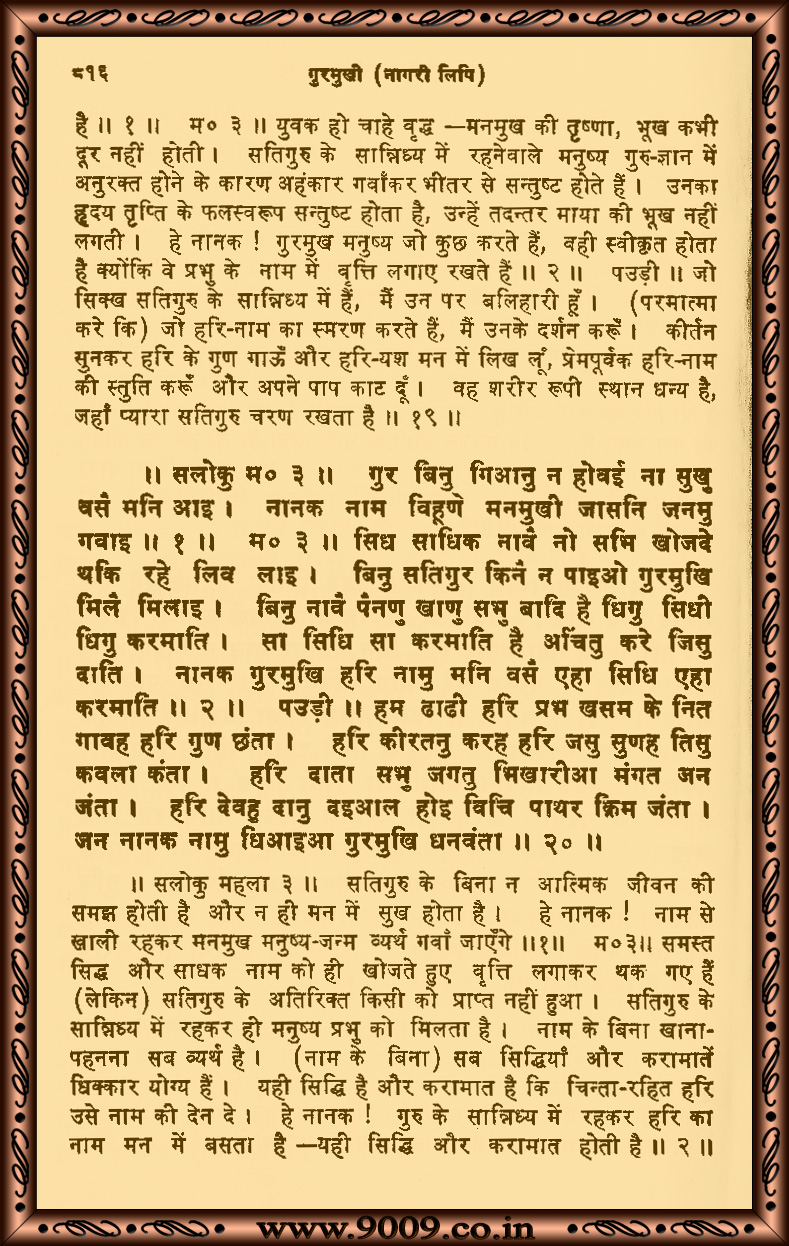 ८१६ गुरमुखी (नागरी लिपि)
है ॥ १ ॥ म० ३ ॥ युवक हो चाहे वृद्ध —मनमुख की तृष्णा, भूख कभी
दूर नहीं होती । सतिगुरु के सान्निध्य में रहनेवाले मनुष्य गुरु-ज्ञान में
अनुरक्त होने के कारण अहंकार गवाँकर भीतर से सन्तुष्ट होते हैं । उनका
हृदय तृप्ति के फलस्वरूप सन्तुष्ट होता है, उन्हें तदन्तर माया की भूख नहीं
लगती । हे नानक ! गुरमुख मनुष्य जो कुछ करते हैं, वही स्वीकृत होता
है क्योंकि वे प्रभु के नाम में वृत्ति लगाए रखते हैं ॥ २ ॥ पउड़ी ॥ जो
सिक्ख सतिगुरु के सान्निध्य में हैं, मैं उन पर बलिहारी हूँ । (परमात्मा
करे कि) जो हरि-नाम का स्मरण करते हैं, मैं उनके दर्शन करूँ । कीर्तन
सुनकर हरि के गुण गाऊँ और हरि-यश मन में लिख लूँ, प्रेमपूर्वक हरि-नाम
की स्तुति करूँ और अपने पाप काट दूँ । वह शरीर रूपी स्थान धन्य है,
जहाँ प्यारा सतिगुरु चरण रखता है ॥ १९ ॥
॥ सलोकु म० ३ ॥ गुर बिनु गिआनु न होवई ना सुखु
वसै मनि आइ । नानक नाम विहूणे मनमुखी जासनि जनमु
गवाइ ॥ १ ॥ म० ३ ॥ सिध साधिक नावै नो सभि खोजदे
थकि रहे लिव लाइ । बिनु सतिगुर किनै न पाइओ गुरमुखि
मिलै मिलाइ । बिनु नावै पैनणु खाणु सभु बादि है धिगु सिधी
धिगु करमाति । सा सिधि सा करमाति है अचिंतु करे जिसु
दाति । नानक गुरमुखि हरि नामु मनि वसै एहा सिधि एहा
करमाति ॥ २ ॥ पउड़ी ॥ हम ढाढी हरि प्रभ खसम के नित
गावह हरि गुण छंता । हरि कीरतनु करह हरि जसु सुणह तिसु
कवला कंता । हरि दाता सभु जगतु भिखारीआ मंगत जन
जंता । हरि देवहु दानु दइआल होइ विचि पाथर क्रिम जंता ।
जन नानक नामु धिआइआ गुरमुखि धनवंता ॥ २० ॥
॥ सलोकु महला ३ ॥ सतिगुरु के बिना न आत्मिक जीवन की
समझ होती है और न ही मन में सुख होता है । हे नानक ! नाम से
खाली रहकर मनमुख मनुष्य-जन्म व्यर्थ गवाँ जाएँगे ॥१॥ म०३॥ समस्त
सिद्ध और साधक नाम को ही खोजते हुए वृत्ति लगाकर थक गए हैं
(लेकिन) सतिगुरु के अतिरिक्त किसी को प्राप्त नहीं हुआ । सतिगुरु के
सान्निध्य में रहकर ही मनुष्य प्रभु को मिलता है । नाम के बिना खाना-
पहनना सब व्यर्थ है । (नाम के बिना) सब सिद्धियाँ और करामातें
धिक्कार योग्य हैं । यही सिद्धि है और करामात है कि चिन्ता-रहित हरि
उसे नाम की देन दे । हे नानक ! गुरु के सान्निध्य में रहकर हरि का
नाम मन में बसता है —यही सिद्धि और करामात होती है ॥ २ ॥
www.9009.co.in